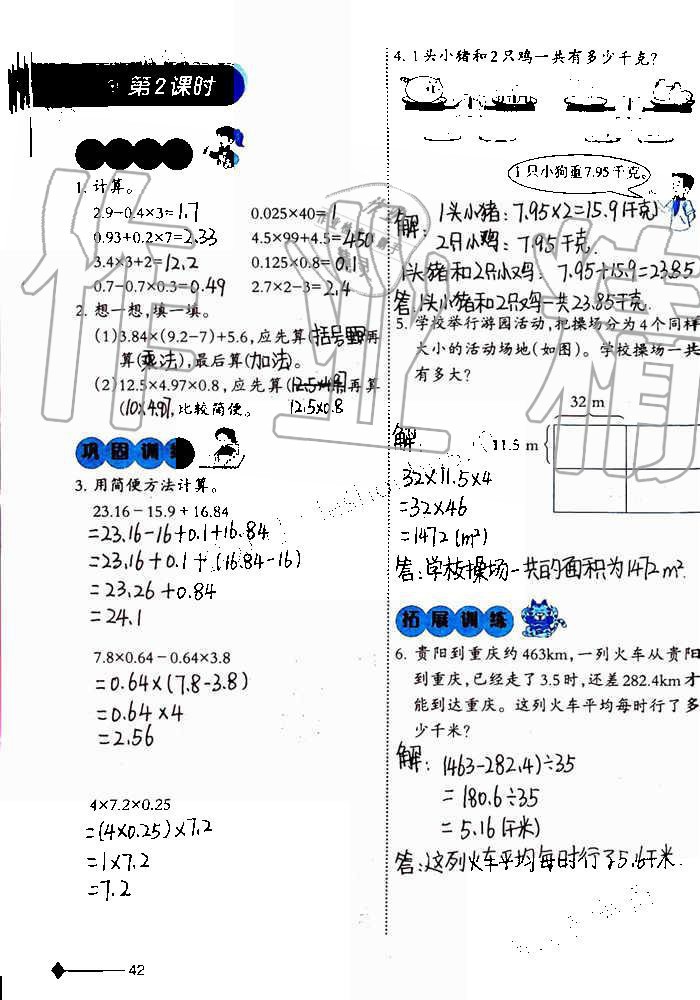 第2课时
1. 计算。
2.9-0.4×3=1.7 0.025×40=1
0.93+0.2×7=2.33 4.5×99+4.5=450
3.4×3+2=12.2 0.125×0.8=0.1
0.7-0.7×0.3=0.49 2.7×2-3=2.4
2. 想一想，填一填。
(1)3.84×(9.2-7)+5.6，应先算(括号里)再
算(乘法)，最后算(加法)。
(2)12.5×4.97×0.8，应先算(12.5×4.97)再算
12.5×0.8
(10×4.97)，比较简便。
巩固训练
3. 用简便方法计算。
23.16-15.9+16.84
=23.16-16+0.1+16.84
=23.16+0.1+(16.84-16)
=23.26+0.84
=24.1
7.8×0.64-0.64×3.8
=0.64×(7.8-3.8)
=0.64×4
=2.56
4×7.2×0.25
=(4×0.25)×7.2
=1×7.2
=7.2
42
4. 1头小猪和2只鸡一共有多少千克？
1只小狗重7.95千克。
解：1头小猪：7.95×2=15.9(千克)
2只小鸡：7.95千克
1头猪和2只小鸡：7.95+15.9=23.85
答：1头小猪和2只小鸡一共23.85千克。
5. 学校举行游园活动，把操场分为4个同样
大小的活动场地(如图)。学校操场一共
有多大？
32 m
11.5 m
解：
32×11.5×4
=32×46
=1472(m²)
答：学校操场一共的面积为1472m².
拓展训练
6. 贵阳到重庆约463km，一列火车从贵阳
到重庆，已经走了3.5时，还差282.4km才
能到达重庆。这列火车平均每时行了多
少千米？
解：(463-282.4)÷35
=180.6÷35
=5.16(千米)
答：这列火车平均每时行了5.6千米.
作业精